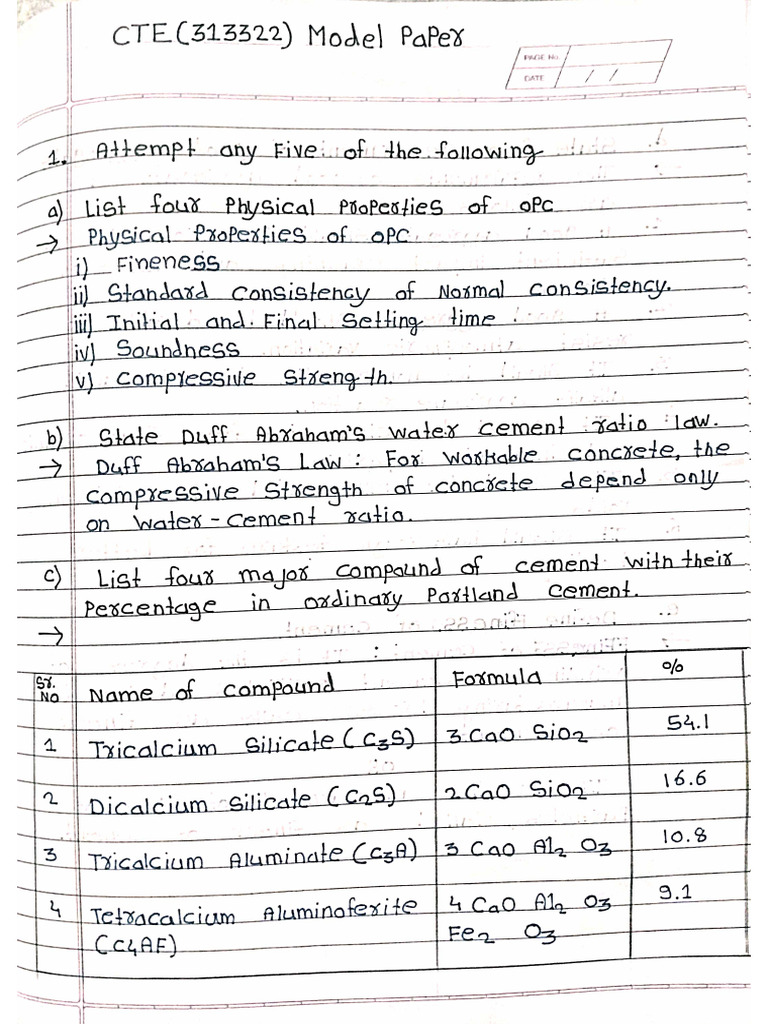 CTE(313322) Model Paper
PAGE No.
DATE / /
1. Attempt any Five of the following
a) List four Physical Properties of OPC
→ Physical Properties of OPC
i) Fineness
ii) Standard Consistency of Normal Consistency.
iii) Initial and Final Setting time
iv) Soundness
v) Compressive Strength.
b) State Duff Abraham's water cement ratio law.
→ Duff Abraham's Law : For workable concrete, the
compressive Strength of concrete depend only
on water-cement ratio.
c) List four major compound of cement with their
Percentage in ordinary Portland cement.
→
Sr. No Name of compound Formula %
1 Tricalcium Silicate (C3S) 3 CaO SiO2 54.1
2 Dicalcium Silicate (C2S) 2CaO SiO2 16.6
3 Tricalcium Aluminate (C3A) 3 CaO Al2 O3 10.8
4 Tetracalcium Aluminoferite 4 CaO Al2 O3 9.1
(C4AF) Fe2 O3